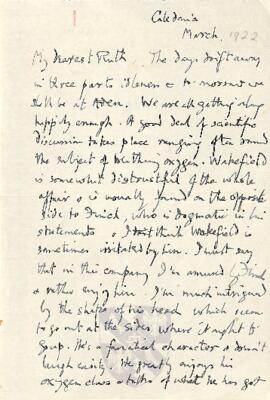 Caledonia
March, 1922
My Dearest Ruth The days drift away
in three parts idleness & to-morrow we
shall be at Aden. We are all getting along
happily enough. A good deal of scientific
discussion takes place ranging often round
the subject of breathing oxygen. Wakefield
is somewhat distrustful of the whole
affair & is usually found on the opposite
side to Finch, who is dogmatic in his
statements & I don't think Wakefield is
sometimes irritated by him. I must say
that in this company I'm amused by Finch
& rather enjoy him. I'm much intrigued
by the shape of his head which seems
to go out at the sides where it ought to
go up. He's a fanatical character & doesn't
laugh easily. He greatly enjoys his
oxygen class & talks of what he has got